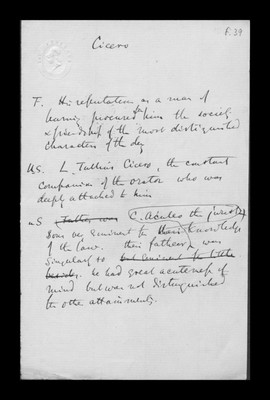 f. 39
Cicero
F. His reputation as a man of
learning procured him the society
& friendship of the most distinguished
characters of the day
US. L. Tullius Cicero, the constant
companion of the orator who was
deeply attached to him
MS C. Aculeo the jurist
Sons were eminent for their knowledge
of the law. their father was
singularly so but eminent for little
besides. he had great acuteness of
mind but was not distinguished
for other attainments.